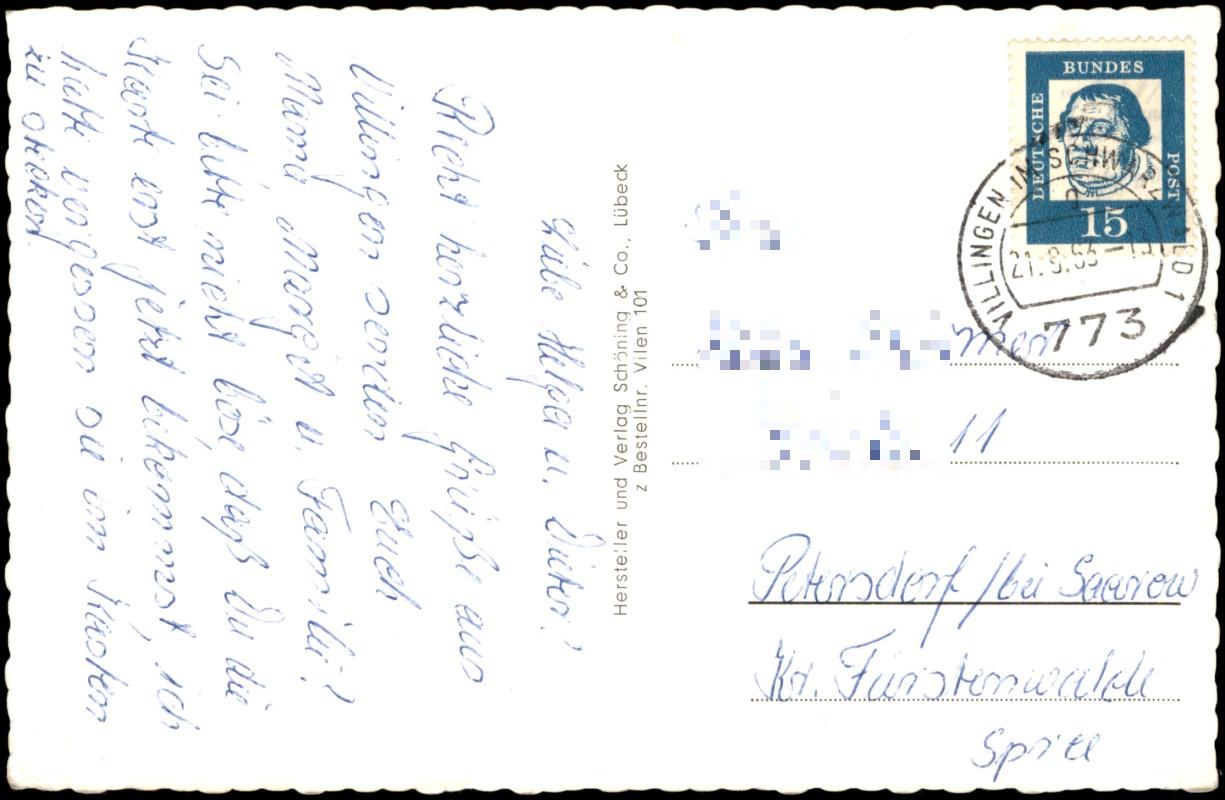 Liebe Helga u. Dieter!
Recht herzliche Grüße aus
Villingen senden Euch
Mama, Margrit u. Familie!
Sei bitte nicht böse, daß Du die
Karte erst jetzt bekommst, ich
hatte vergessen sie im Kasten
zu stecken!
Hersteller und Verlag Schöning & Co., Lübeck
z Bestellnr. Vilen 101
DEUTSCHE
BUNDES
POST
15
VILLINGEN IM SCHWARZWALD 1
773
11
Petersdorf /bei Saarow
Kr. Fürstenwalde
Spree